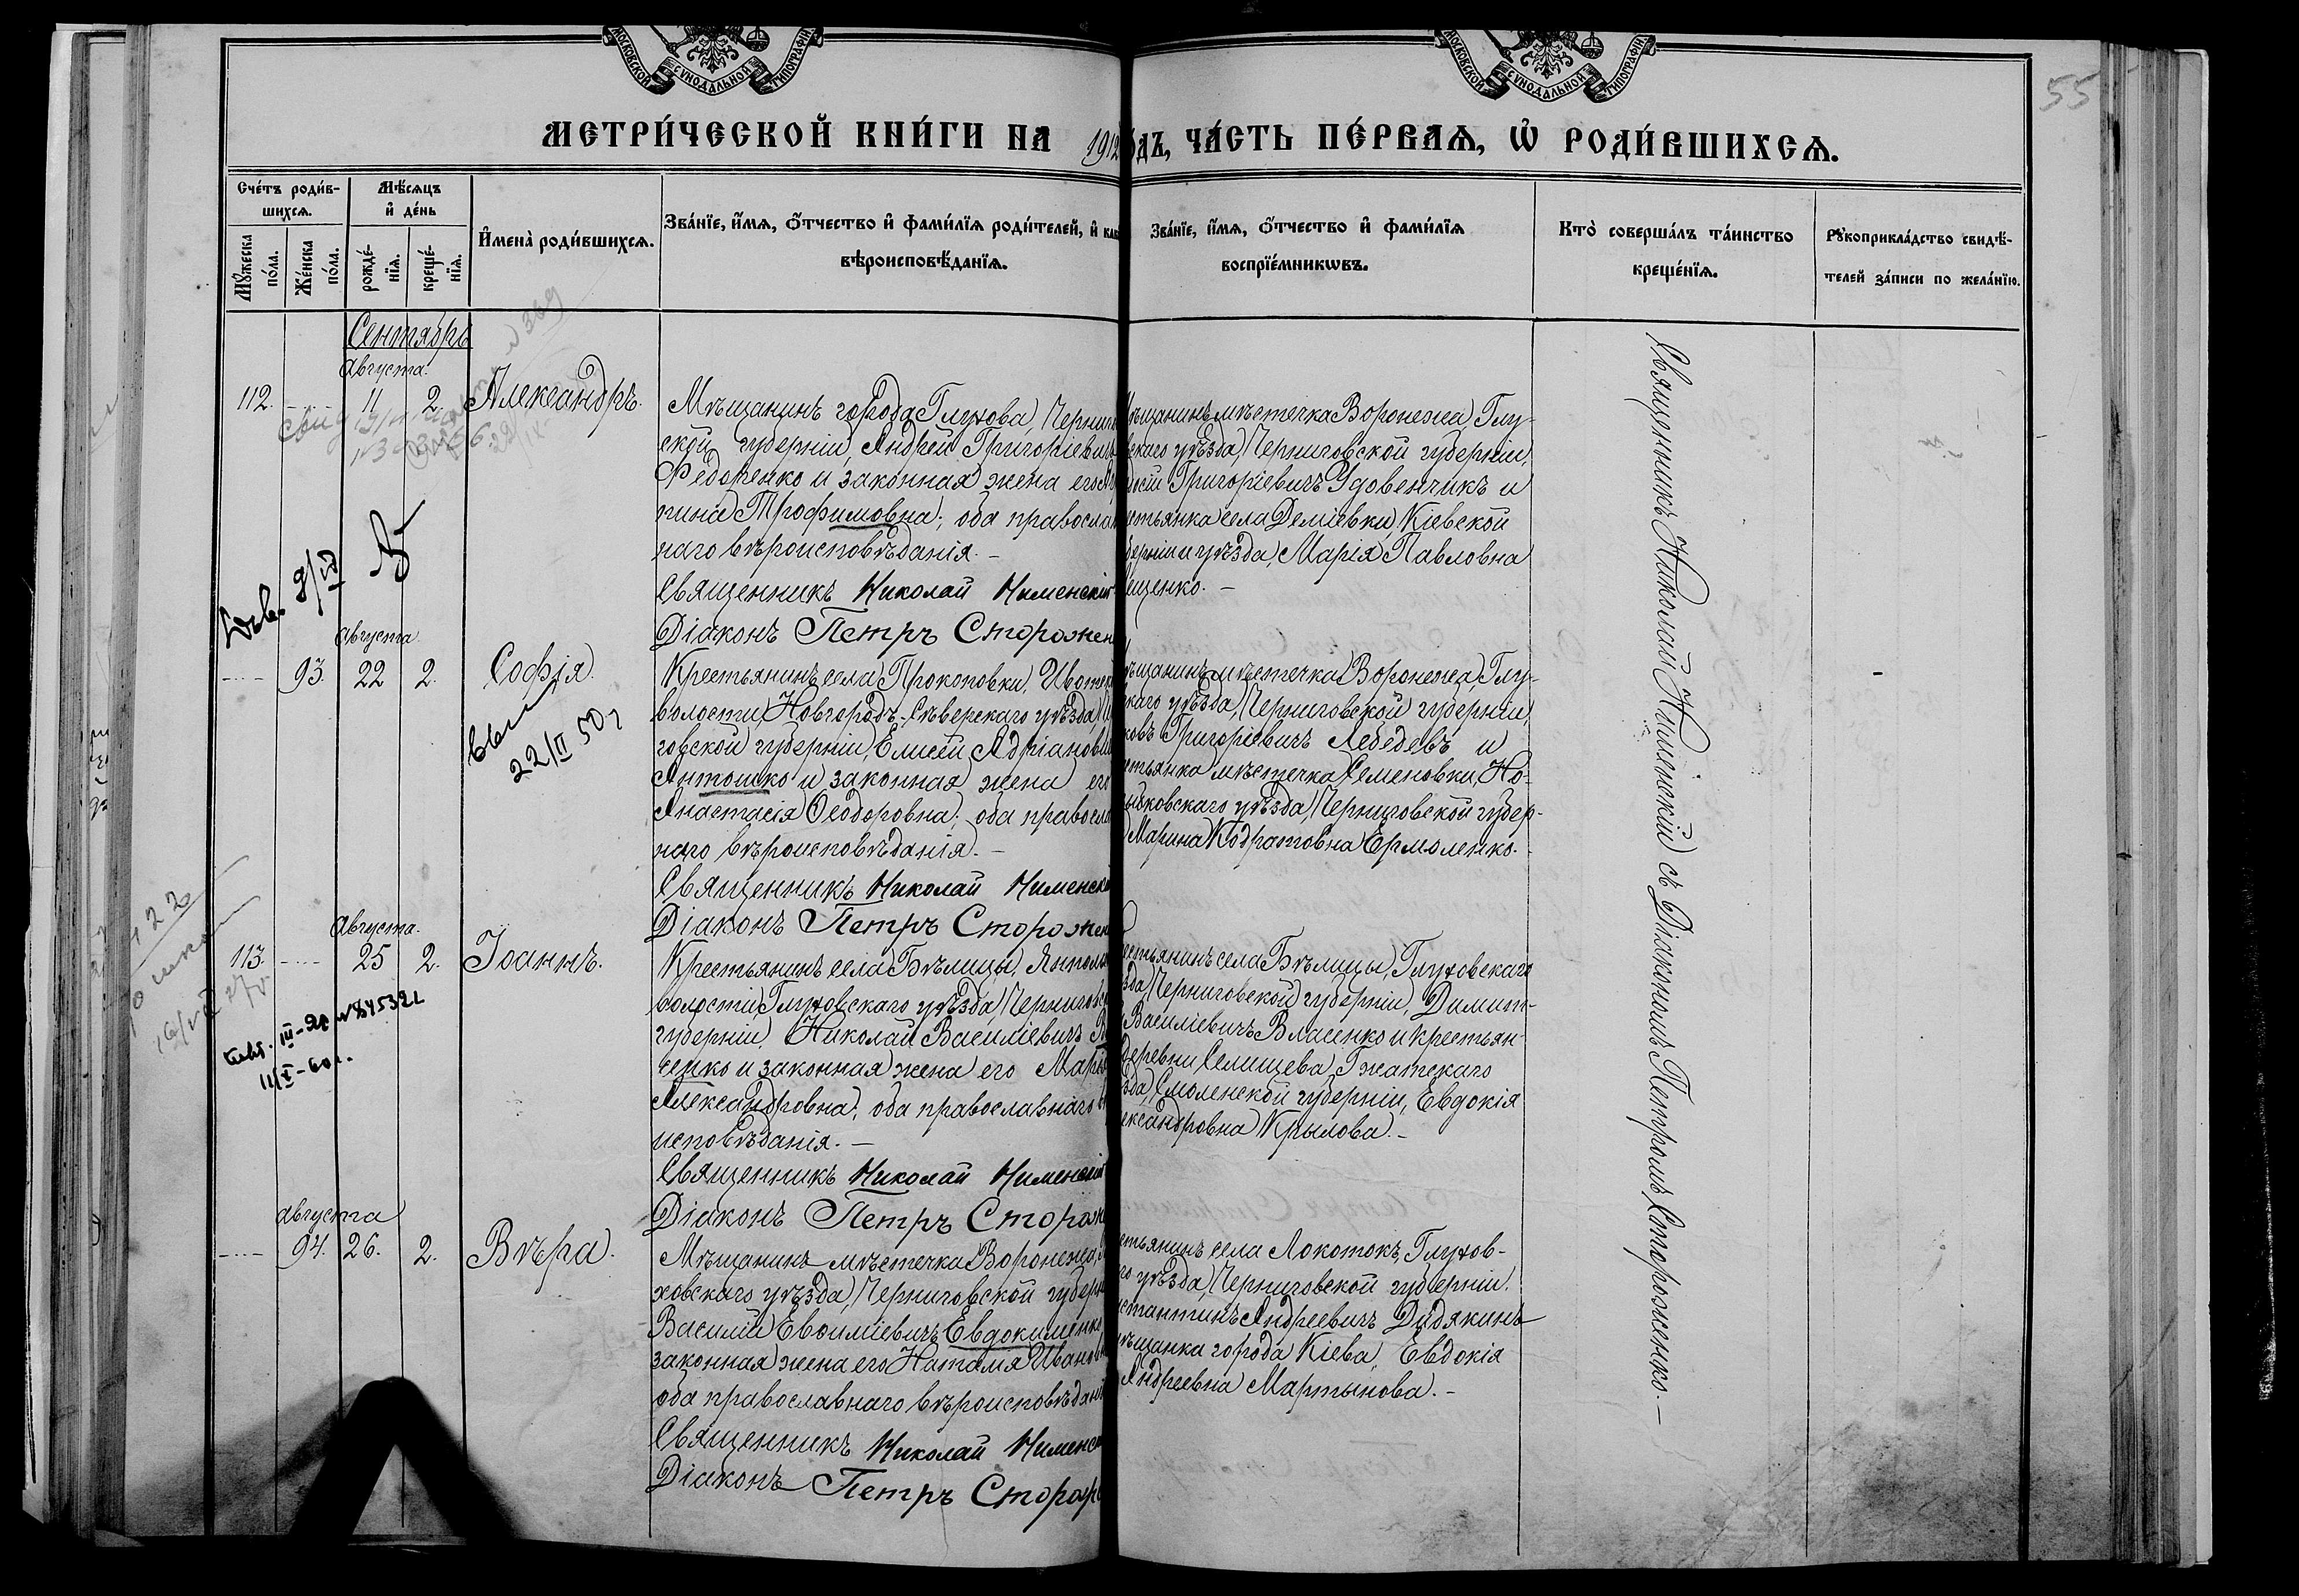 МОСКОВСКОЙ СѴНОДАЛЬНОЙ ТИПОГРАФІИ
МОСКОВСКОЙ СѴНОДАЛЬНОЙ ТИПОГРАФІИ
55
МЕТРИ́ЧЕСКОЙ КНИ́ГИ НА 1912
ОДЪ, ЧА́СТЬ ПЕ́РВАѦ, Ѡ҆ РОДИ́ВШИХСѦ.
Сче́тъ роди́в-
шихсѧ.
Мѣ́сяцъ
и҆ де́нь
Мꙋжеска
по́ла.
Же́нска
по́ла.
рожде́-
нїѧ.
креще́-
нїѧ.
И҆мена̀ роди́вшихсѧ.
Зва́нїе, и҆́мѧ, ѻ҆́тчество и҆ фами́лїѧ роди́телей, и҆ как
вѣроисповѣ́данїѧ.
Зва́нїе, и҆́мѧ, ѻ҆́тчество и҆ фами́лїѧ
воспрїе́мникѡвъ.
Кто̀ соверша́лъ та́инство
креще́нїѧ.
Рꙋкоприкла́дство свидѣ́-
телей за́писи по жела́нїю.
Сентябрь
Августа.
112. 11 2. Александръ.
Мѣщанинъ города Глухова, Черниго
ской губерніи, Андрей Григоріевичъ
Федоренко и законная жена его
пина Трофимовна; оба православ
наго вѣроисповѣданія. –
Священникъ Николай Нименскій
Діаконъ Петръ Стороженк
ѣщанинъ мѣстечка Воронежа, Глу-
скаго уѣзда, Черниговской губерніи,
Григоріевичъ Удовенчикъ и
стьянка села Деміевки Кіевской
берніи и уѣзда, Марія Павловна
щенко. –
Священникъ Николай Нименскій съ Діакономъ Петромъ Стороженко. –
8/IV
Августа.
93. 22 2. Софія.
22/II 50 г
Крестьянинъ села Прокоповки, Ивотск
волости, Новгородъ-Сѣверскаго уѣзда,
говской губерніи, Елисей Адріанови
Антошко и законная жена его
Анастасія Ѳеодоровна; оба правосла
наго вѣроисповѣданія. –
Священникъ Николай Нименск
Діаконъ Петръ Сторожен
ѣщанинъ мѣстечка Воронежа, Глу-
скаго уѣзда, Черниговской губерніи,
ковъ Григоріевичъ Лебедевъ и
стьянка мѣстечка Семеновки, Но-
зыбковскаго уѣзда, Черниговской губер-
Марина Кодратовна Ермоленко.
Августа.
113. 25 2. Іоаннъ.
122
11/X-60 г.
Крестьянинъ села Бѣлицы, Ямполь
волости, Глуховскаго уѣзда, Чернигов
губерніи, Николай Василіевичъ В
сенко и законная жена его Марія
Александровна; оба православнаго в
исповѣданія. –
Священникъ Николай Нименскій
Діаконъ Петръ Сторож
естьянинъ села Бѣлицы, Глуховскаго
зда, Черниговской губерніи, Димит-
Василіевичъ Власенко и крестьян-
деревни Селищева, Гжатскаго
зда, Смоленской губерніи, Евдокія
ександровна Крылова. –
Августа
94. 26. 2. Вѣра.
Мѣщанинъ мѣстечка Воронежа,
ховскаго уѣзда, Черниговской губерн
Василій Евѳиміевичъ Евдокименко
законная жена его Наталія Ивановн
оба православнаго вѣроисповѣдані
Священникъ Николай Нименск
Діаконъ Петръ Сторож
стьянинъ села Локотокъ, Глухов-
го уѣзда, Черниговской губерніи.
стантинъ Андреевичъ Дѣдякинъ
ѣщанка города Кіева, Евдокія
Андреевна Мартынова. –